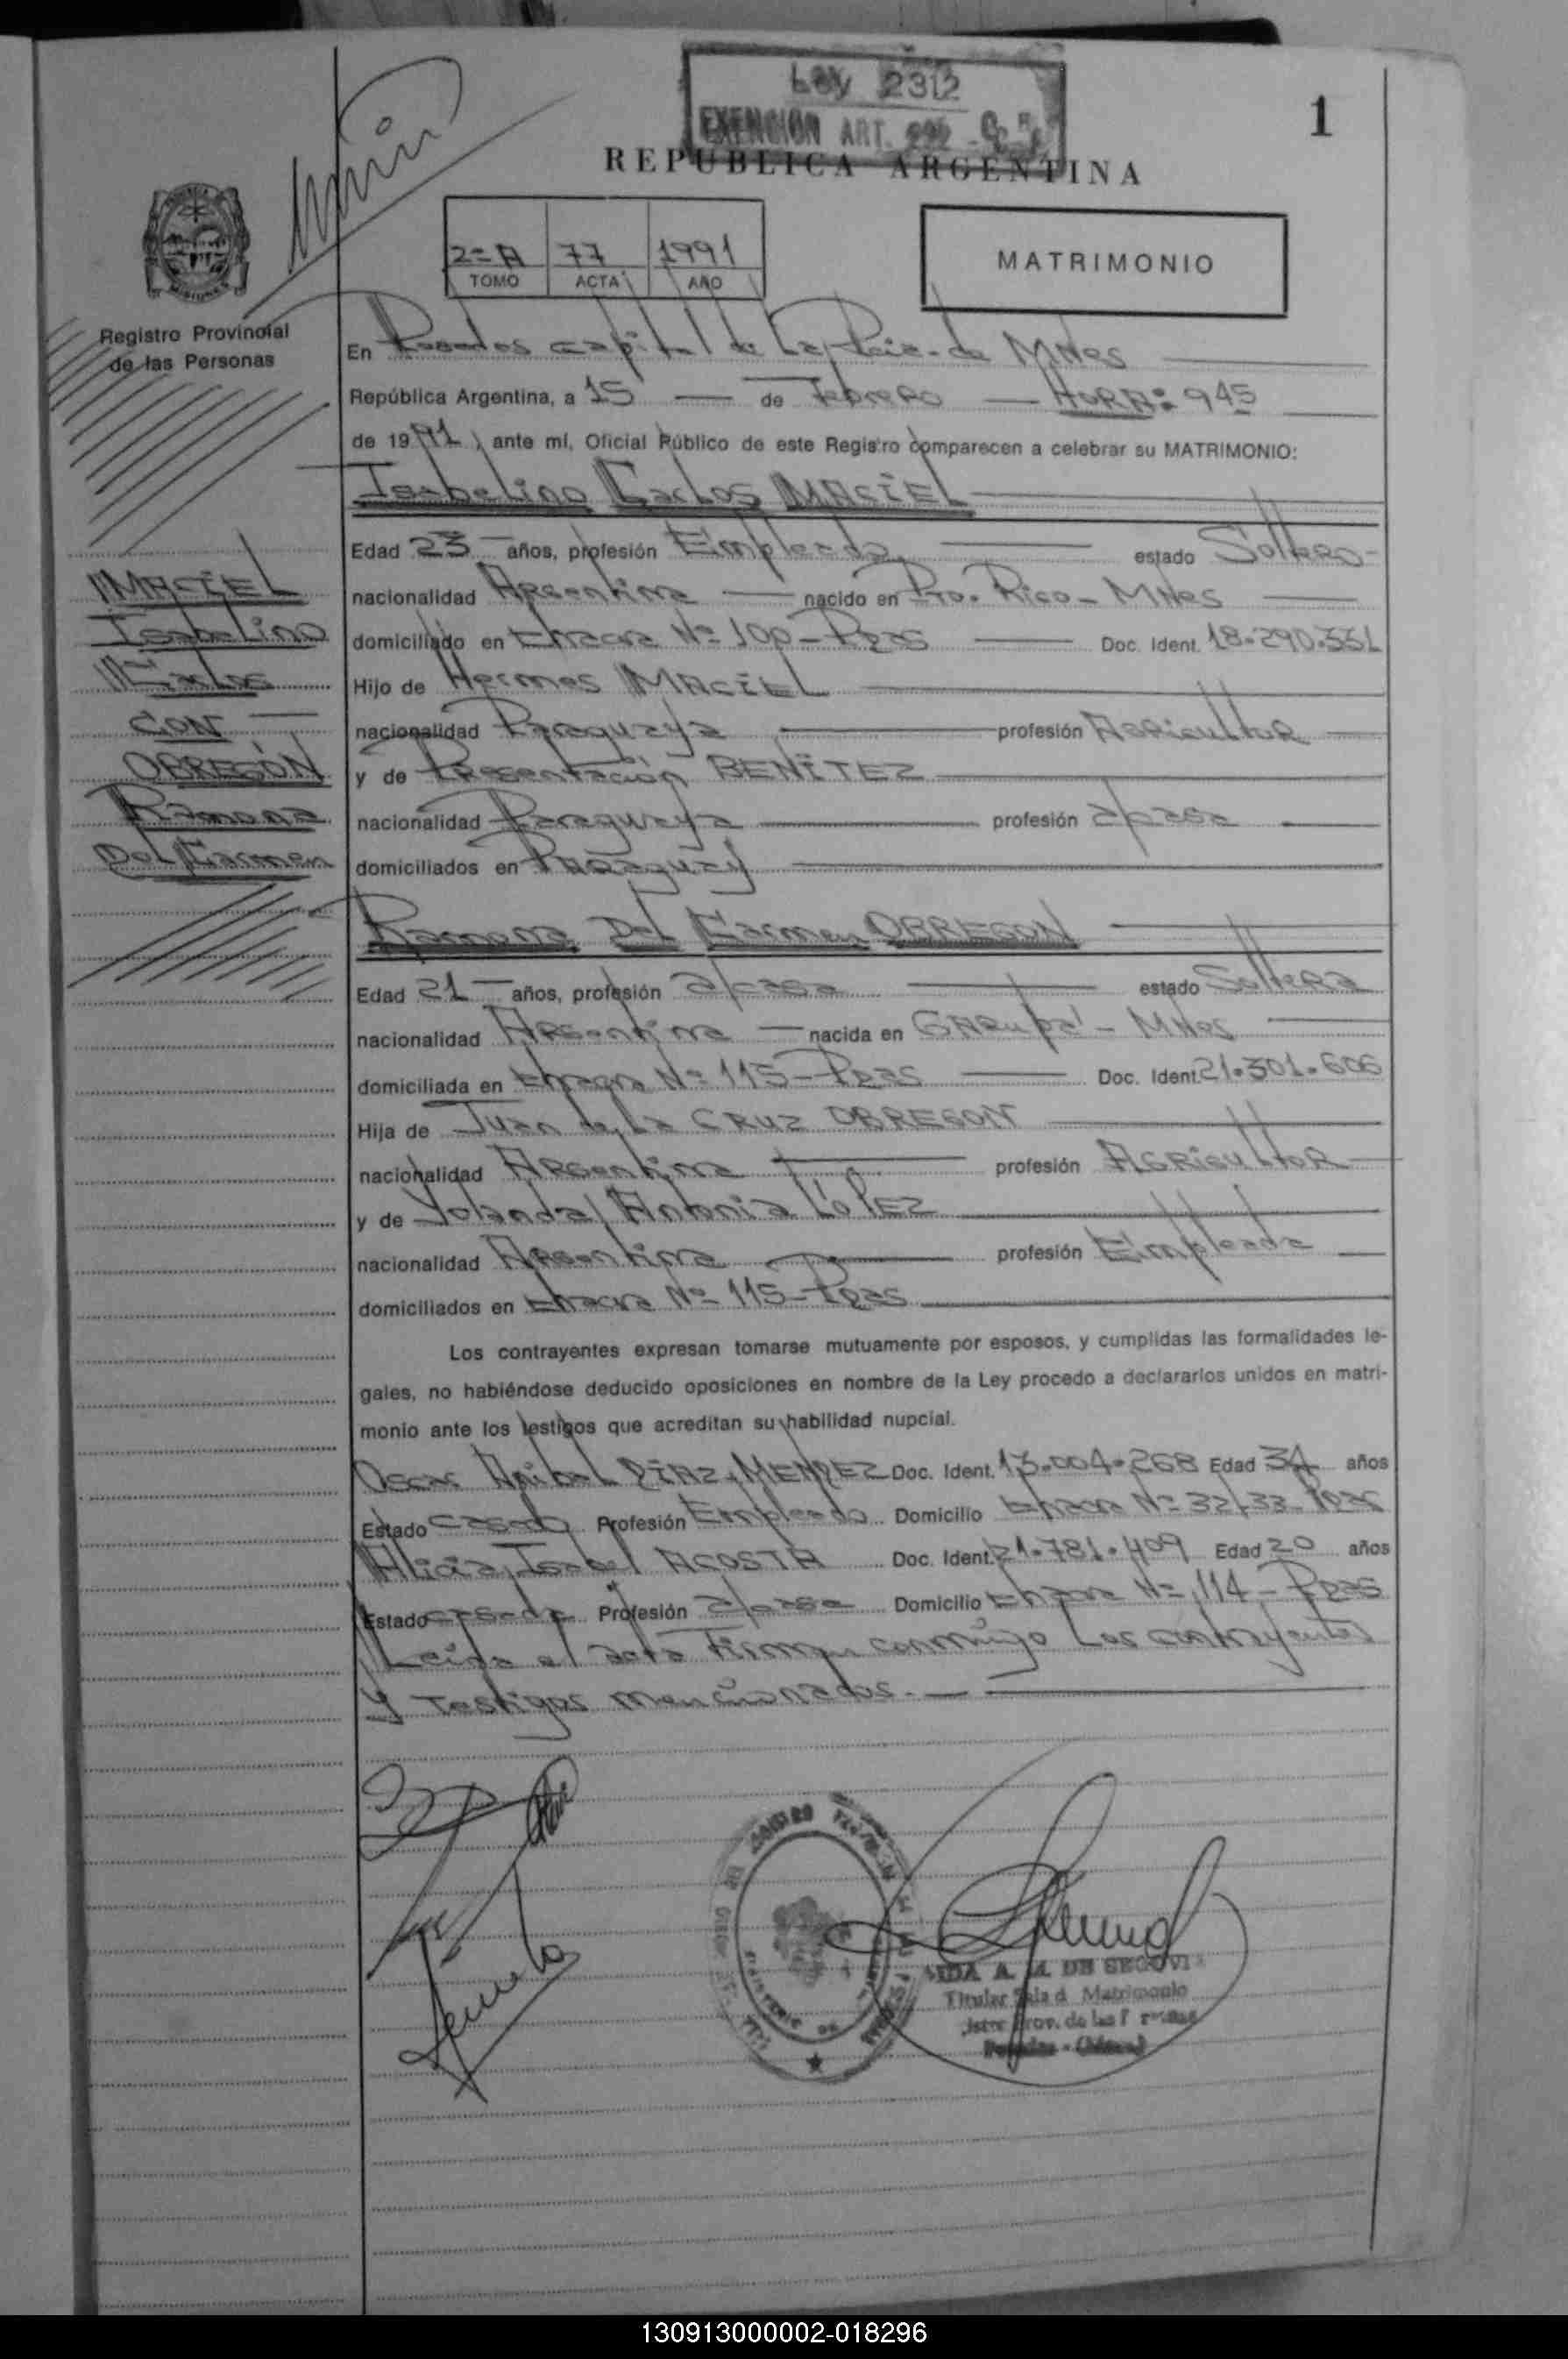 Ley 2312
EXENCIÓN ART. 292 - C. F.
1
REPUBLICA ARGENTINA
2=A 77 1991
TOMO ACTA AÑO
MATRIMONIO
MISIONES
Registro Provincial
de las Personas
En Posadas capital de La Pcia. de MNes
República Argentina, a 15 de Febrero HORA: 945
de 1991, ante mí, Oficial Público de este Registro comparecen a celebrar su MATRIMONIO:
Isabelino Carlos MACIEL
Edad 23 años, profesión Empleado estado Soltero
nacionalidad Argentina nacido en Pto. Rico - MNes
domiciliado en Chacra Nº 100 - Pdas Doc. Ident. 18.290.331
Hijo de Hermes MACIEL
nacionalidad Paraguaya profesión Agricultor
y de Presentación BENITEZ
nacionalidad Paraguaya profesión a/casa
domiciliados en Paraguay
MACIEL
Isabelino
Carlos
CON
OBREGÓN
Ramona
Del Carmen
Ramona Del Carmen OBREGON
Edad 21 años, profesión a/casa estado Soltera
nacionalidad Argentina nacida en GARUPá - MNes
domiciliada en Chacra Nº 115 - Pdas Doc. Ident. 21.301.606
Hija de Juan de La CRUZ OBREGON
nacionalidad Argentina profesión Agricultor
y de Yolanda Antonia LÓPEZ
nacionalidad Argentina profesión Empleada
domiciliados en Chacra Nº 115 - Pdas
Los contrayentes expresan tomarse mutuamente por esposos, y cumplidas las formalidades le-
gales, no habiéndose deducido oposiciones en nombre de la Ley procedo a declararlos unidos en matri-
monio ante los testigos que acreditan su habilidad nupcial.
Oscar Anibal DÍAZ MENDEZ Doc. Ident. 13.004.268 Edad 34 años
Estado casado Profesión Empleado Domicilio Chacra Nº 32/33 - Pdas
Alicia Isabel ACOSTA Doc. Ident. 21.781.409 Edad 20 años
Estado casada Profesión a/casa Domicilio Chacra Nº 114 - Pdas
Leída el acta Firman conmigo Los contrayentes
Y Testigos mencionados.
A. M. DE SEGOVIA
Titular Sala d Matrimonio
Prov. de las
Posadas - (Mnes)
130913000002-018296